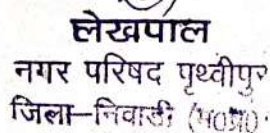 लेखपाल
नगर परिषद पृथ्वीपुर
जिला–निवाड़ी (म0प्र0)